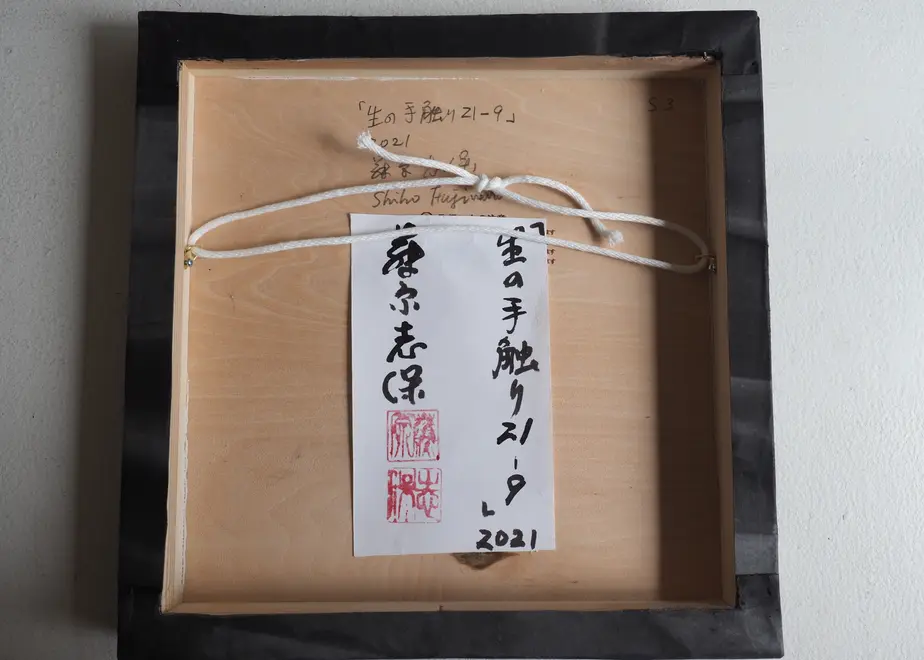 「生の手触り21-9」
S3
2021
Shiho
「生の手触り21-9」
2021
藤宗志保
藤宗
志保